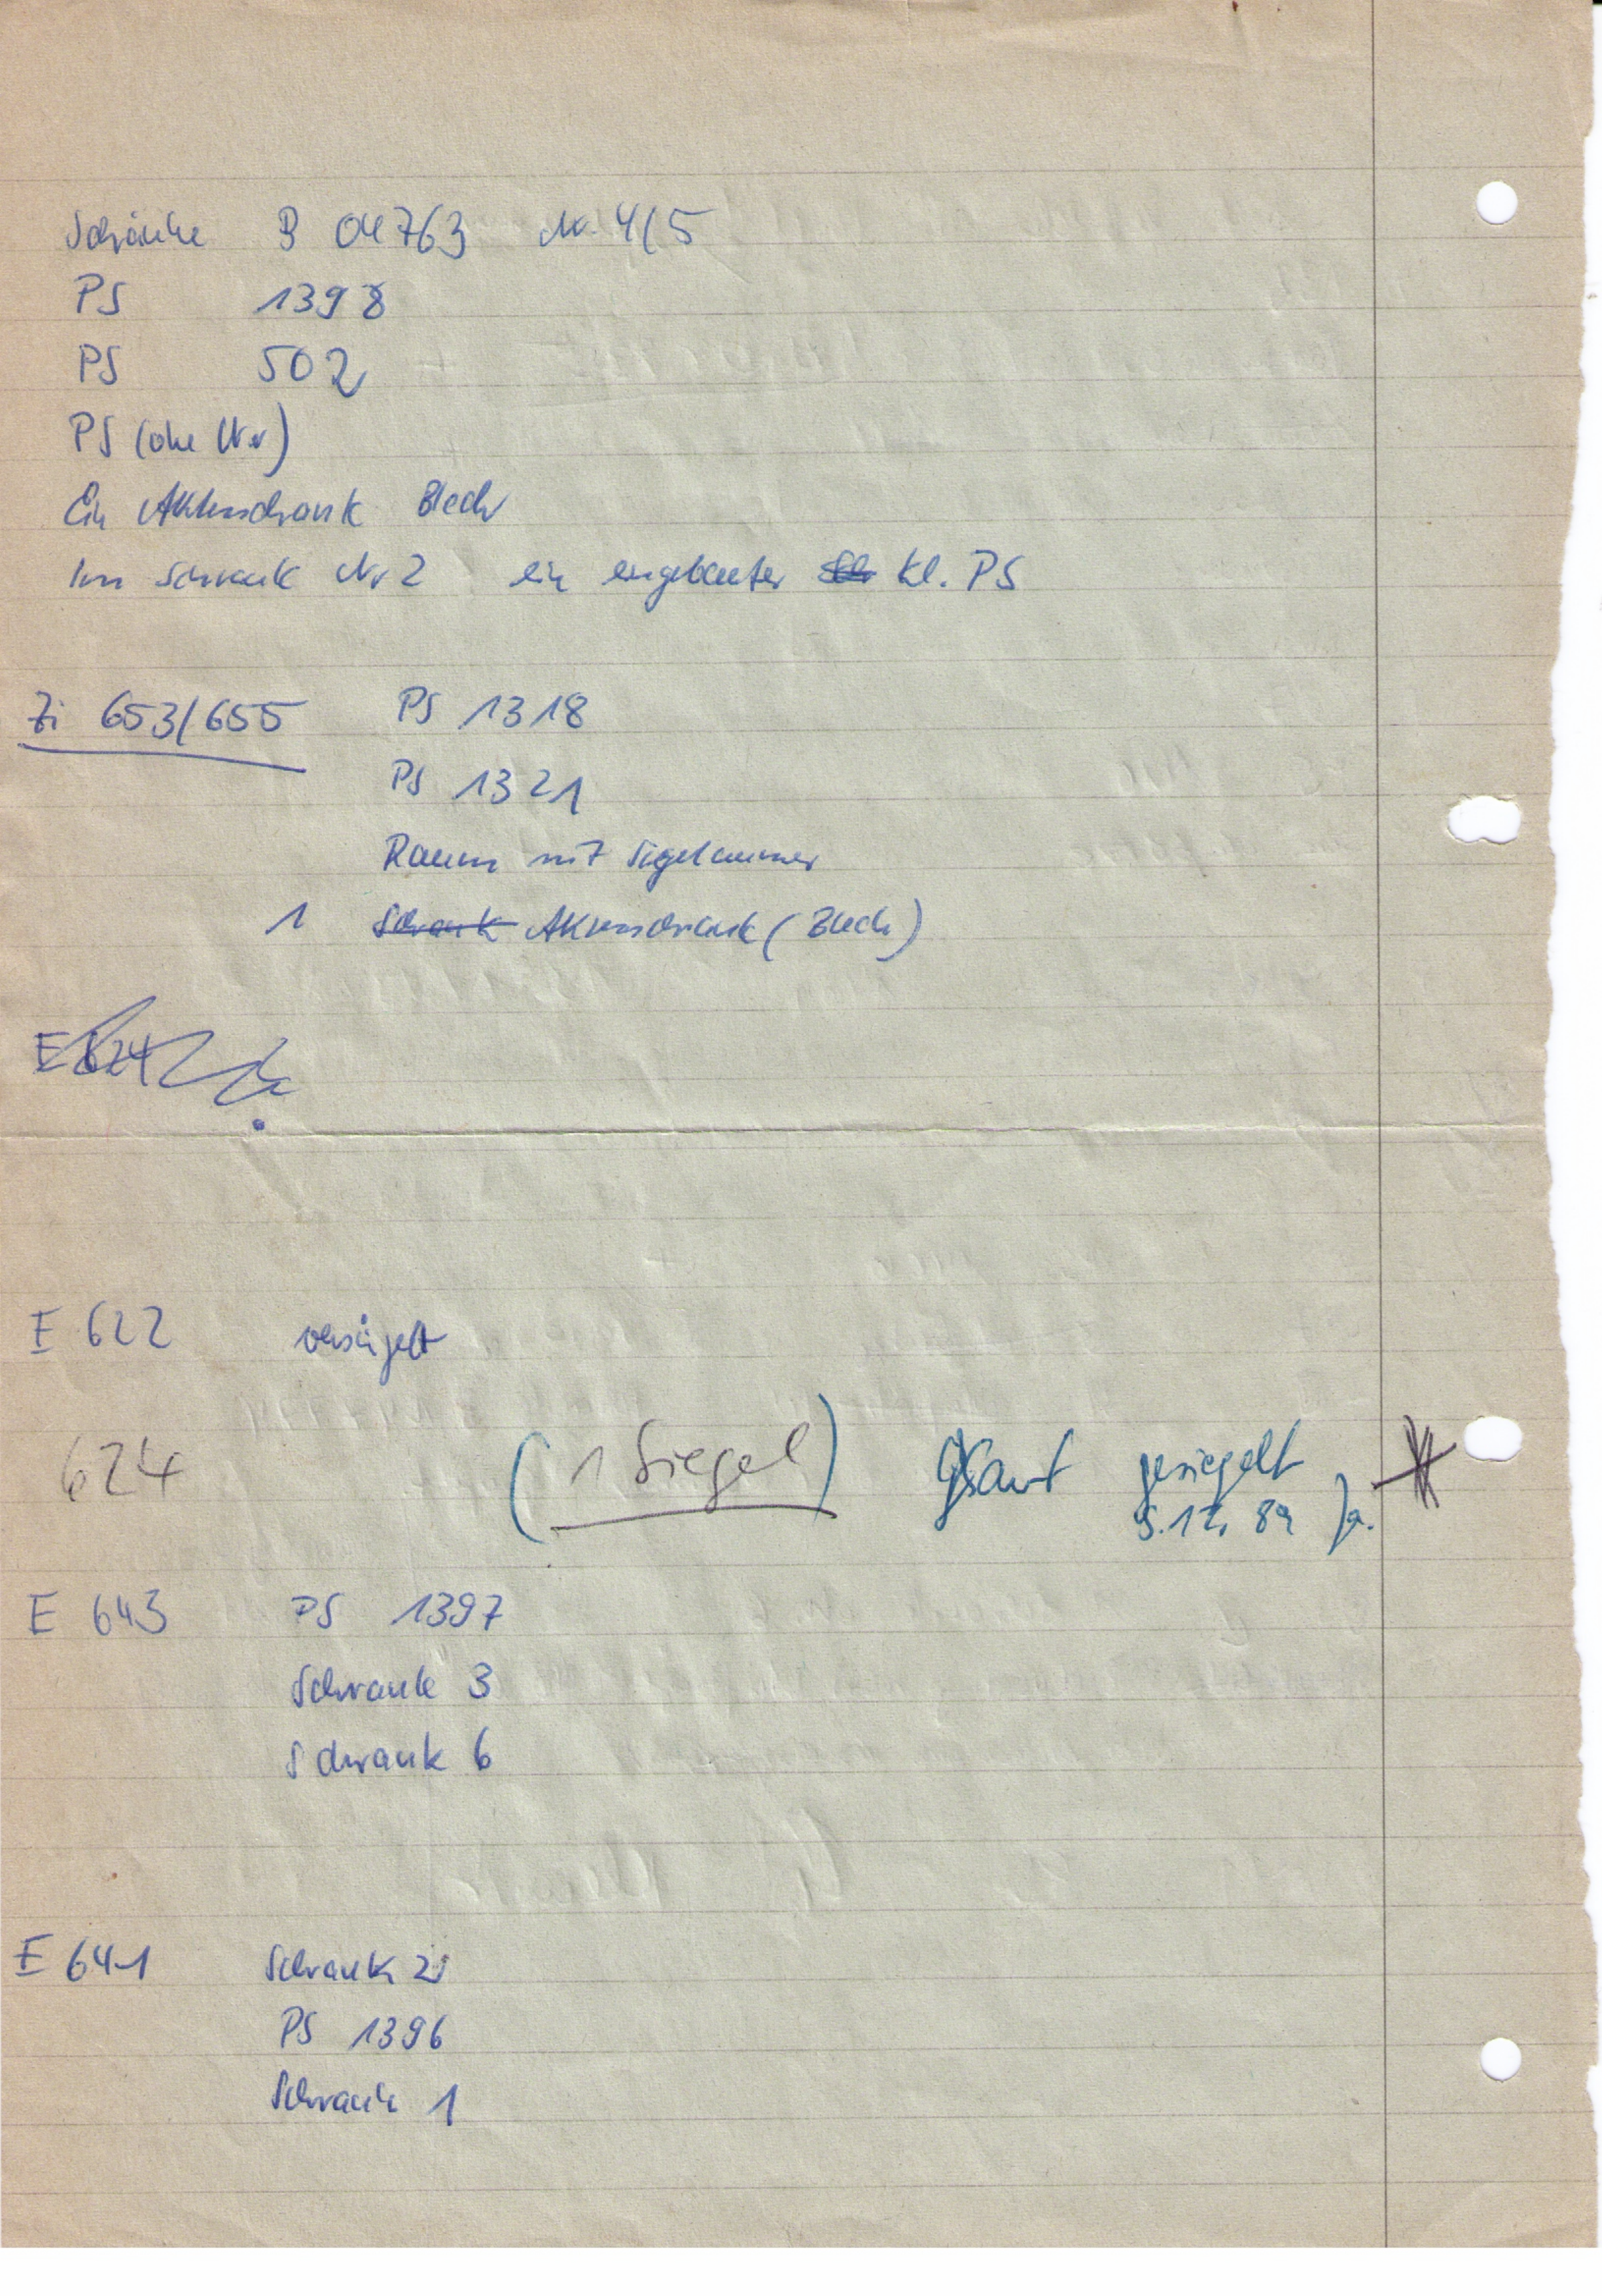 Schränke B 04763 Nr. 4/5
PS 1398
PS 502
PS (ohne Nr)
Ein Aktenschrank Blech
Im Schrank Nr 2 ein eingebauter kl. PS
Zi 653/655 PS 1318
PS 1321
Raum mit Siegelnummer
1 Schrank Aktenschrank (Blech)
E 624
E 622 versiegelt
624 (1 Siegel) gesiegelt
5.12. 89 Ja.
E 643 PS 1397
Schrank 3
Schrank 6
E 641 Schrank 2
PS 1396
Schrank 1